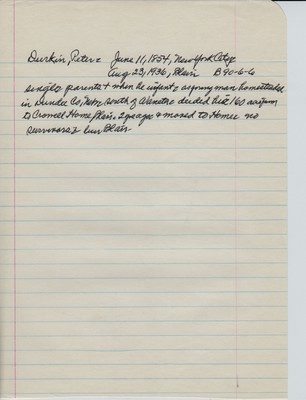 Durkin, Peter = June 11, 1854, New York City
Aug 23, 1936, Blair B 90-6-6
single parents + when he infant = as young man homesteaded
in Dundee Co, Nebr south of deeded his 160
to Crowell Home Blair 2 yrs ago + moved to Home no
survivors = bur Blair